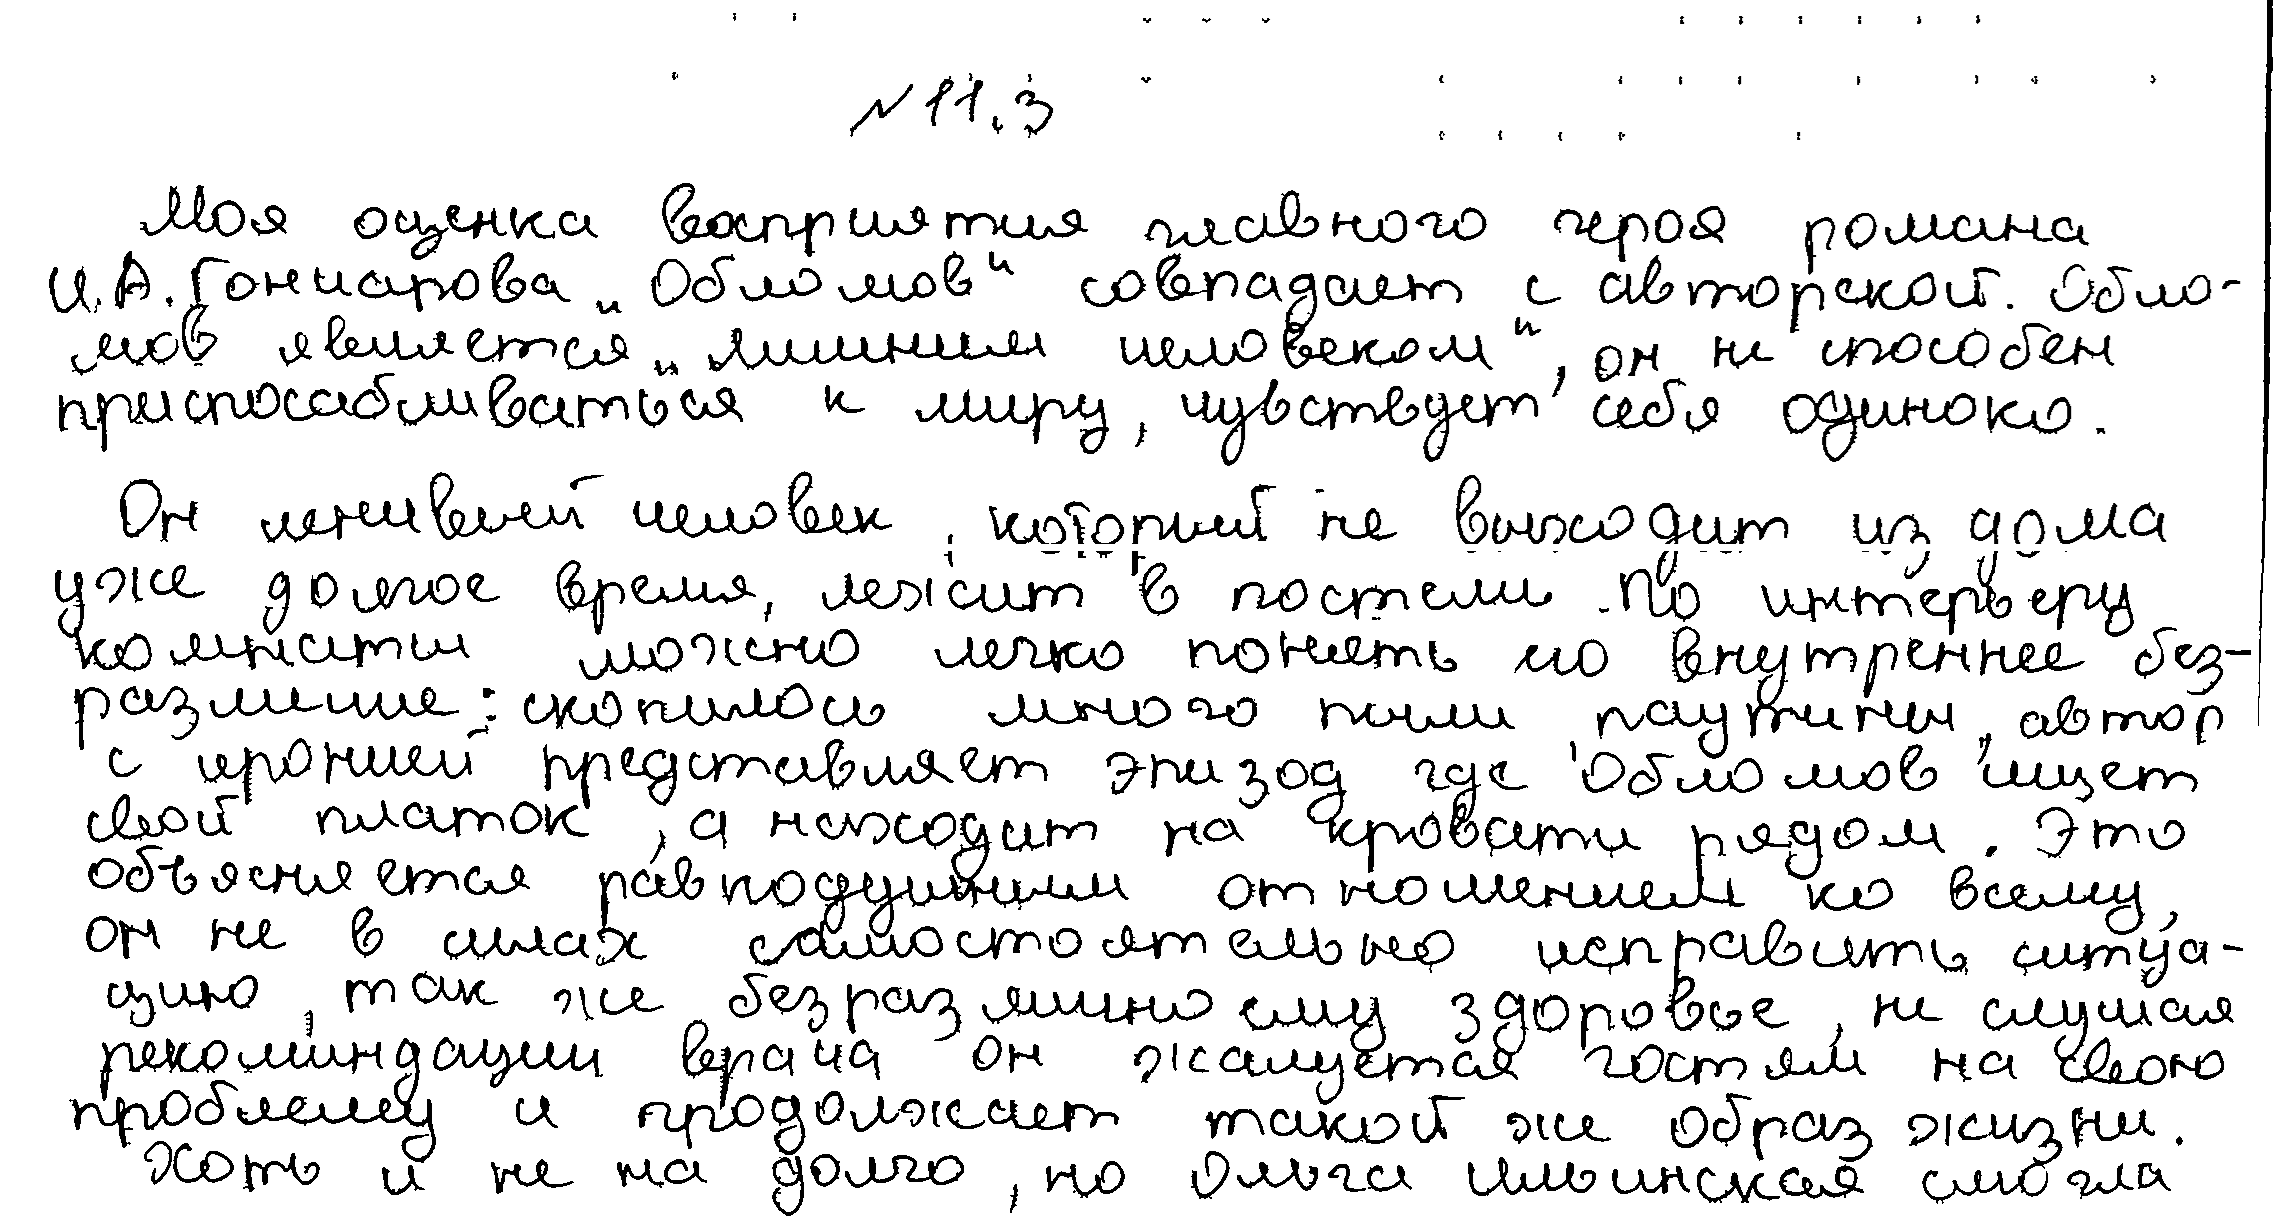 №11.3
Моя оценка восприятия главного героя романа
И.А. Гончарова „Обломов“ совпадает с авторской. Обло-
мов является „лишним человеком“, он не способен
приспосабливаться к миру, чувствует себя одиноко.
Он ленивый человек, который не выходит из дома
уже долгое время, лежит в постели. По интерьеру
комнаты можно легко понять его внутреннее без-
различие: скопилось много пыли, паутины, автор
с иронией представляет эпизод где Обломов ищет
свой платок, а находит на кровати рядом. Это
объясняется равнодушным отношением ко всему,
он не в силах самостоятельно исправить ситуа-
цию, так же безразлично ему здоровье, не слушая
рекоминдации врача он жалуется гостям на свою
проблему и продолжает такой же образ жизни.
Хоть и не на долго, но Ольга Ильинская смогла